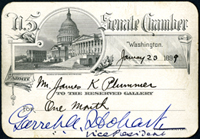 U.S. Senate Chamber.
Washington,
Jan'y 20 1899
Mr. James K Plummer
TO THE RESERVED GALLERY
One Month
Garret A. Hobart
Vice President